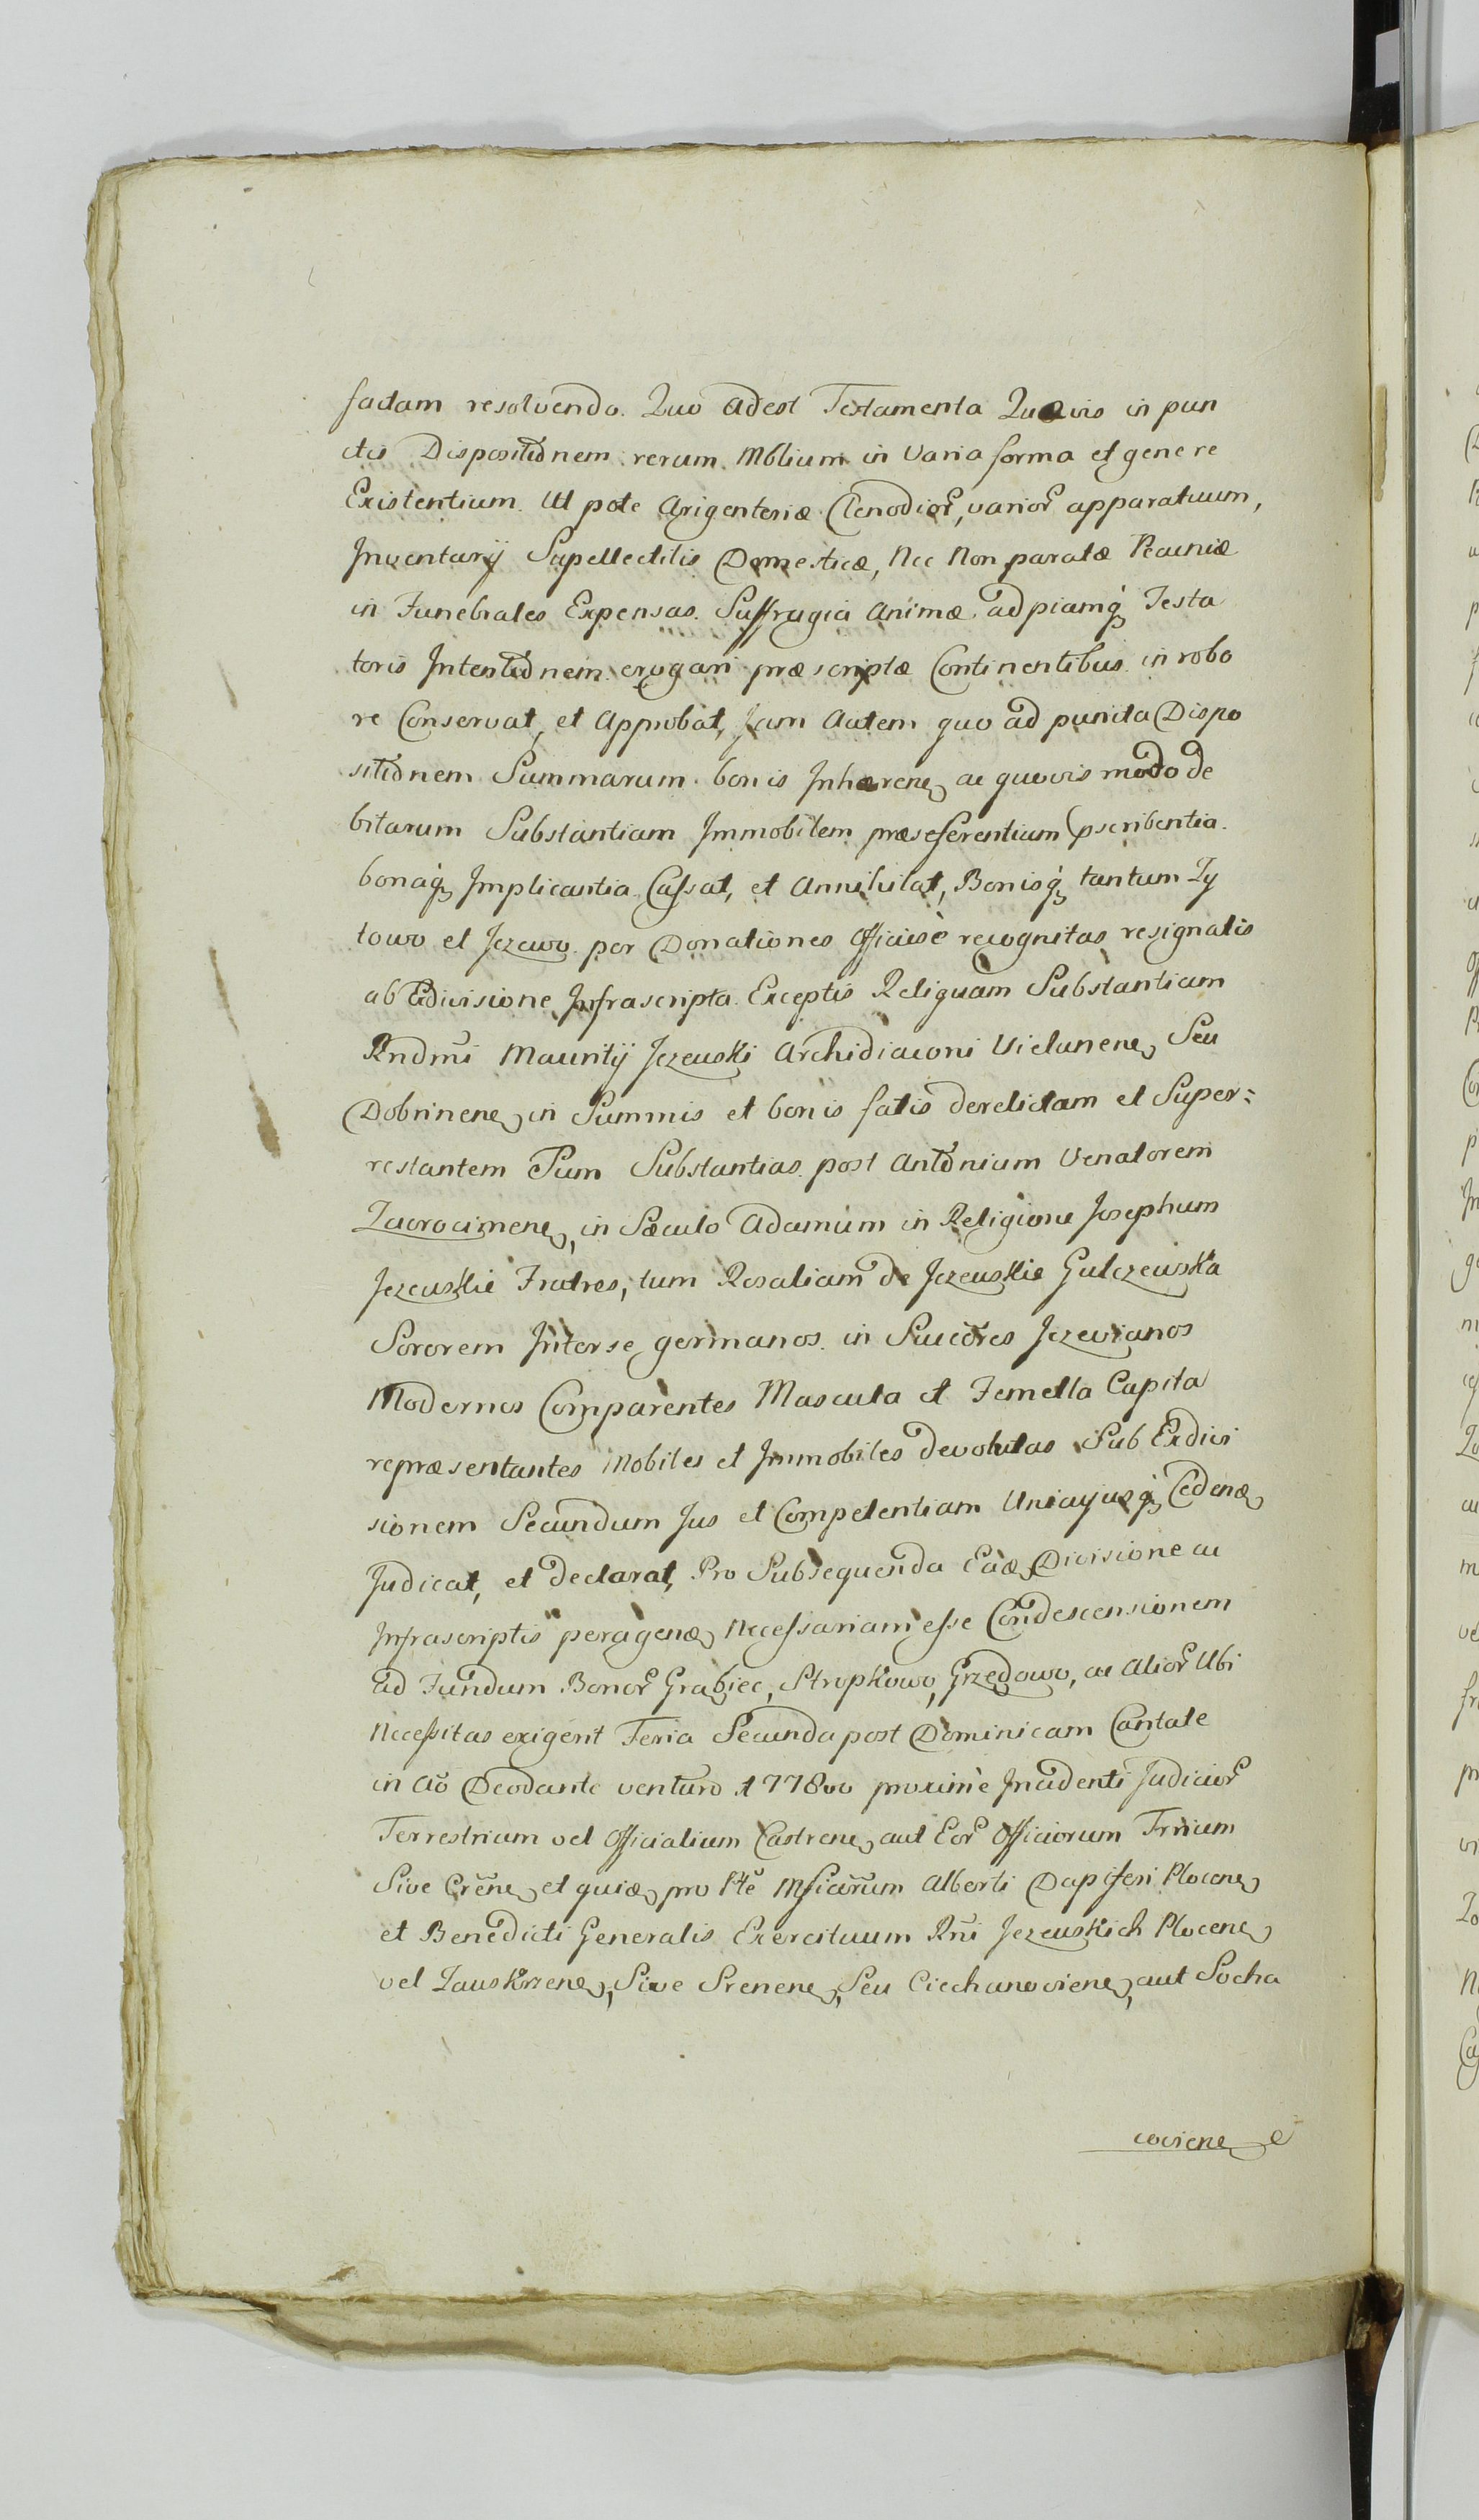 factam resolvendo. Quo adest Testamenta Quævis in pun
ctis Dispositionem rerum Mblium in varia forma et genere
Existentium. Ut pote Arigenteriæ Clenodior, varior apparatuum,
Inventarij Supellectilis Domesticæ, Nec Non paratæ Pecuniæ
in Funebrales Expensas. Suffragia Animæ ad piamq Testa
toris Intentionem erogari præscriptæ Continentibus in robo
re Conservat, et Approbat, Jam Autem quo ad puncta Dispo
sitionem Summarum bonis Inhærene ac quovis modo de
bitarum Substantiam Immobilem præseferentium pscribentia
bonaq Implicantia Cassat, et Annihilat, Bonisq tantum Zy
towo et Jezewo per Donationes Officiose recognitas resignatis
ab Exdivisione Infrascripta Exceptis Reliquam Substantiam
Rndmi Mauritij Jezewski Archidiaconi Vielunene, Seu
Dobrinene, in Summis et bonis fatis derelictam et Super=
restantem Tum Substantias post Antonium Venatorem
Zacrocimene, in Sæculo Adamum in Religione Josephum
Jezewskie Fratres, tum Rosaliam de Jezewskie Gulczewska
Sororem Interse germanos in Succores Jezevianos
Modernos Comparentes Mascula et Femella Capita
repræsentantes Mobiles et Immobiles devolutas Sub Exdivi
sionem Secundum Jus et Competentiam Unicujusq Cedenæ
Judicat, et declarat, Pro Subsequenda Eaæ Divisione ac
Infrascriptis peragenæ Necessariam esse Condescensionem
ad Fundum Bonor Grabiec, Stropkowo, Grzędowo, ac Alior Ubi
Necessitas exigerit Feria Secunda post Dominicam Cantate
in Ao Deodante venturo 1778vo proxime Incidenti Judicior
Terrestrium vel Officialium Castrene, aut Eor Officiorum Trrium
Sive Crene, et quiæ pro Pte Mficarum Alberti Dapiferi Plocene,
et Benedicti Generalis Exercituum Rni Jezewskich Plocene,
vel Zauskrzene, Sive Srenene, Seu Ciechanoviene, aut Socha
coviene